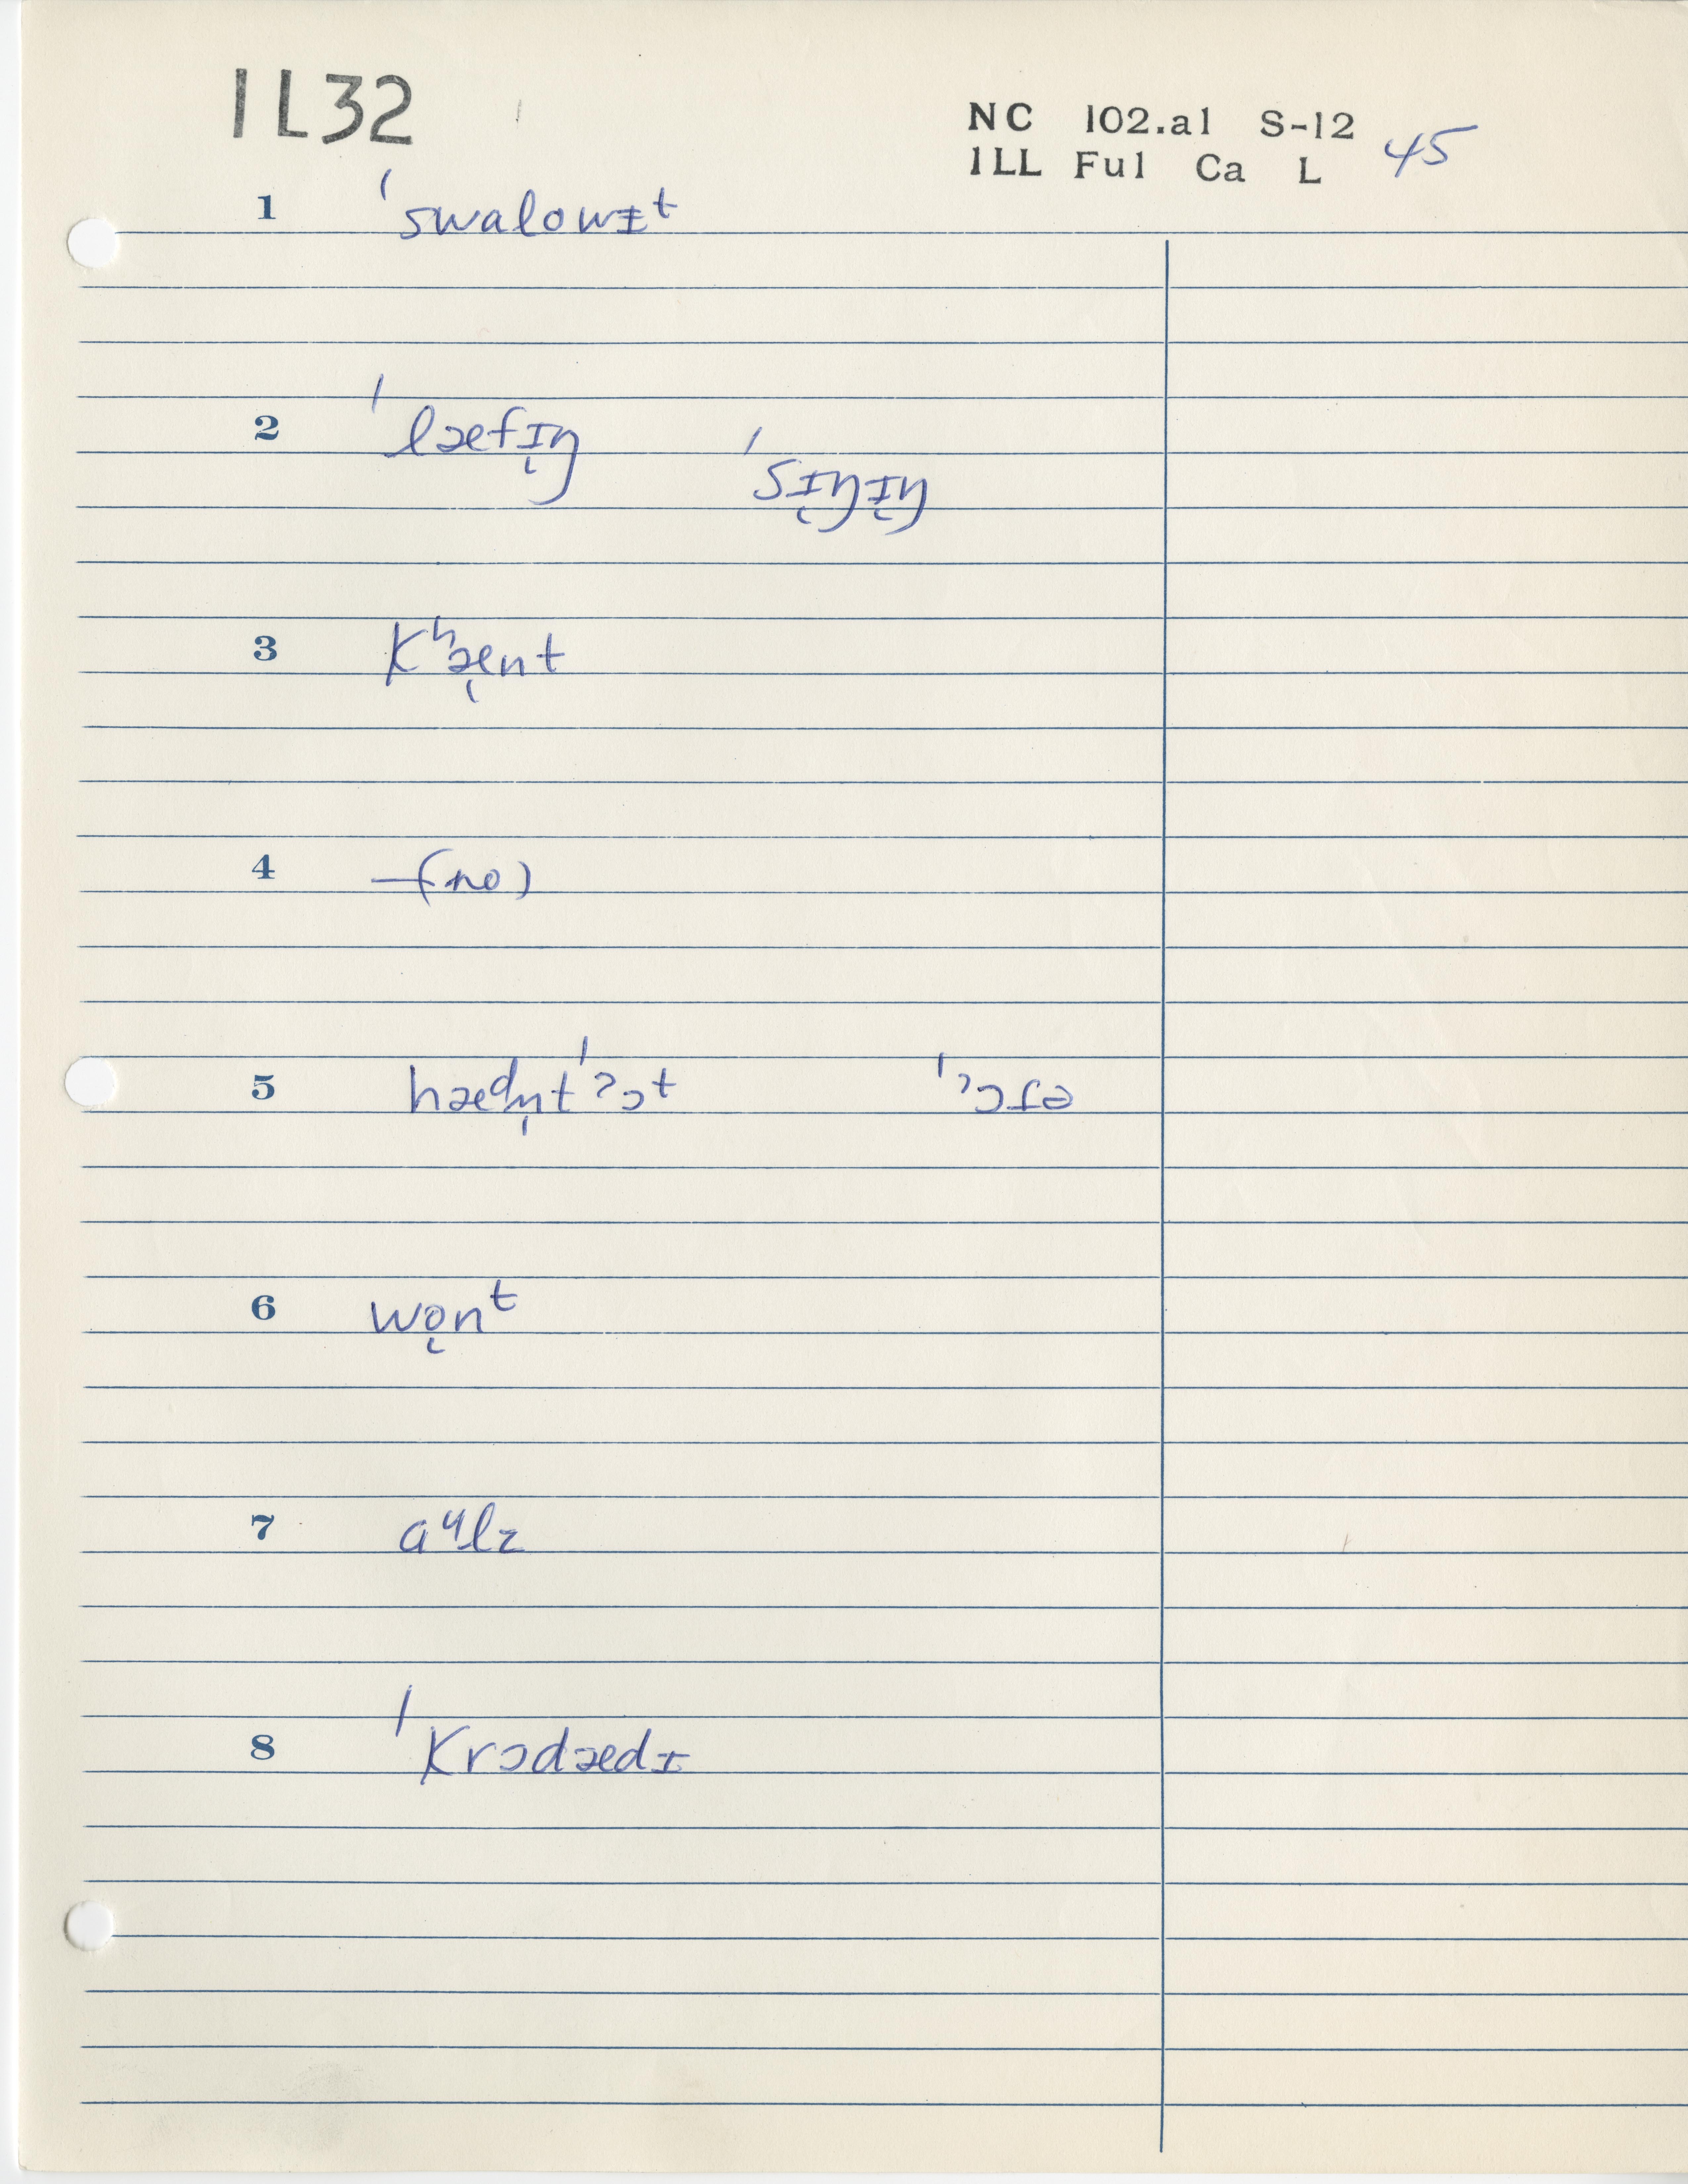 IL32
NC 102.a1 S-12
ILL Ful Ca L 45
1 ˈswalowɪᵗ
2 ˈlæfɪ̜ŋ ˈsɪ̜ŋɪ̜ŋ
3 Kʰæ̜nt
4 —(no)
5 hædn̩tˈʔɔt ˈʔɔfə
6 wo̜nᵗ
7 aᶣlz
8 ˈKrɔdædɪ